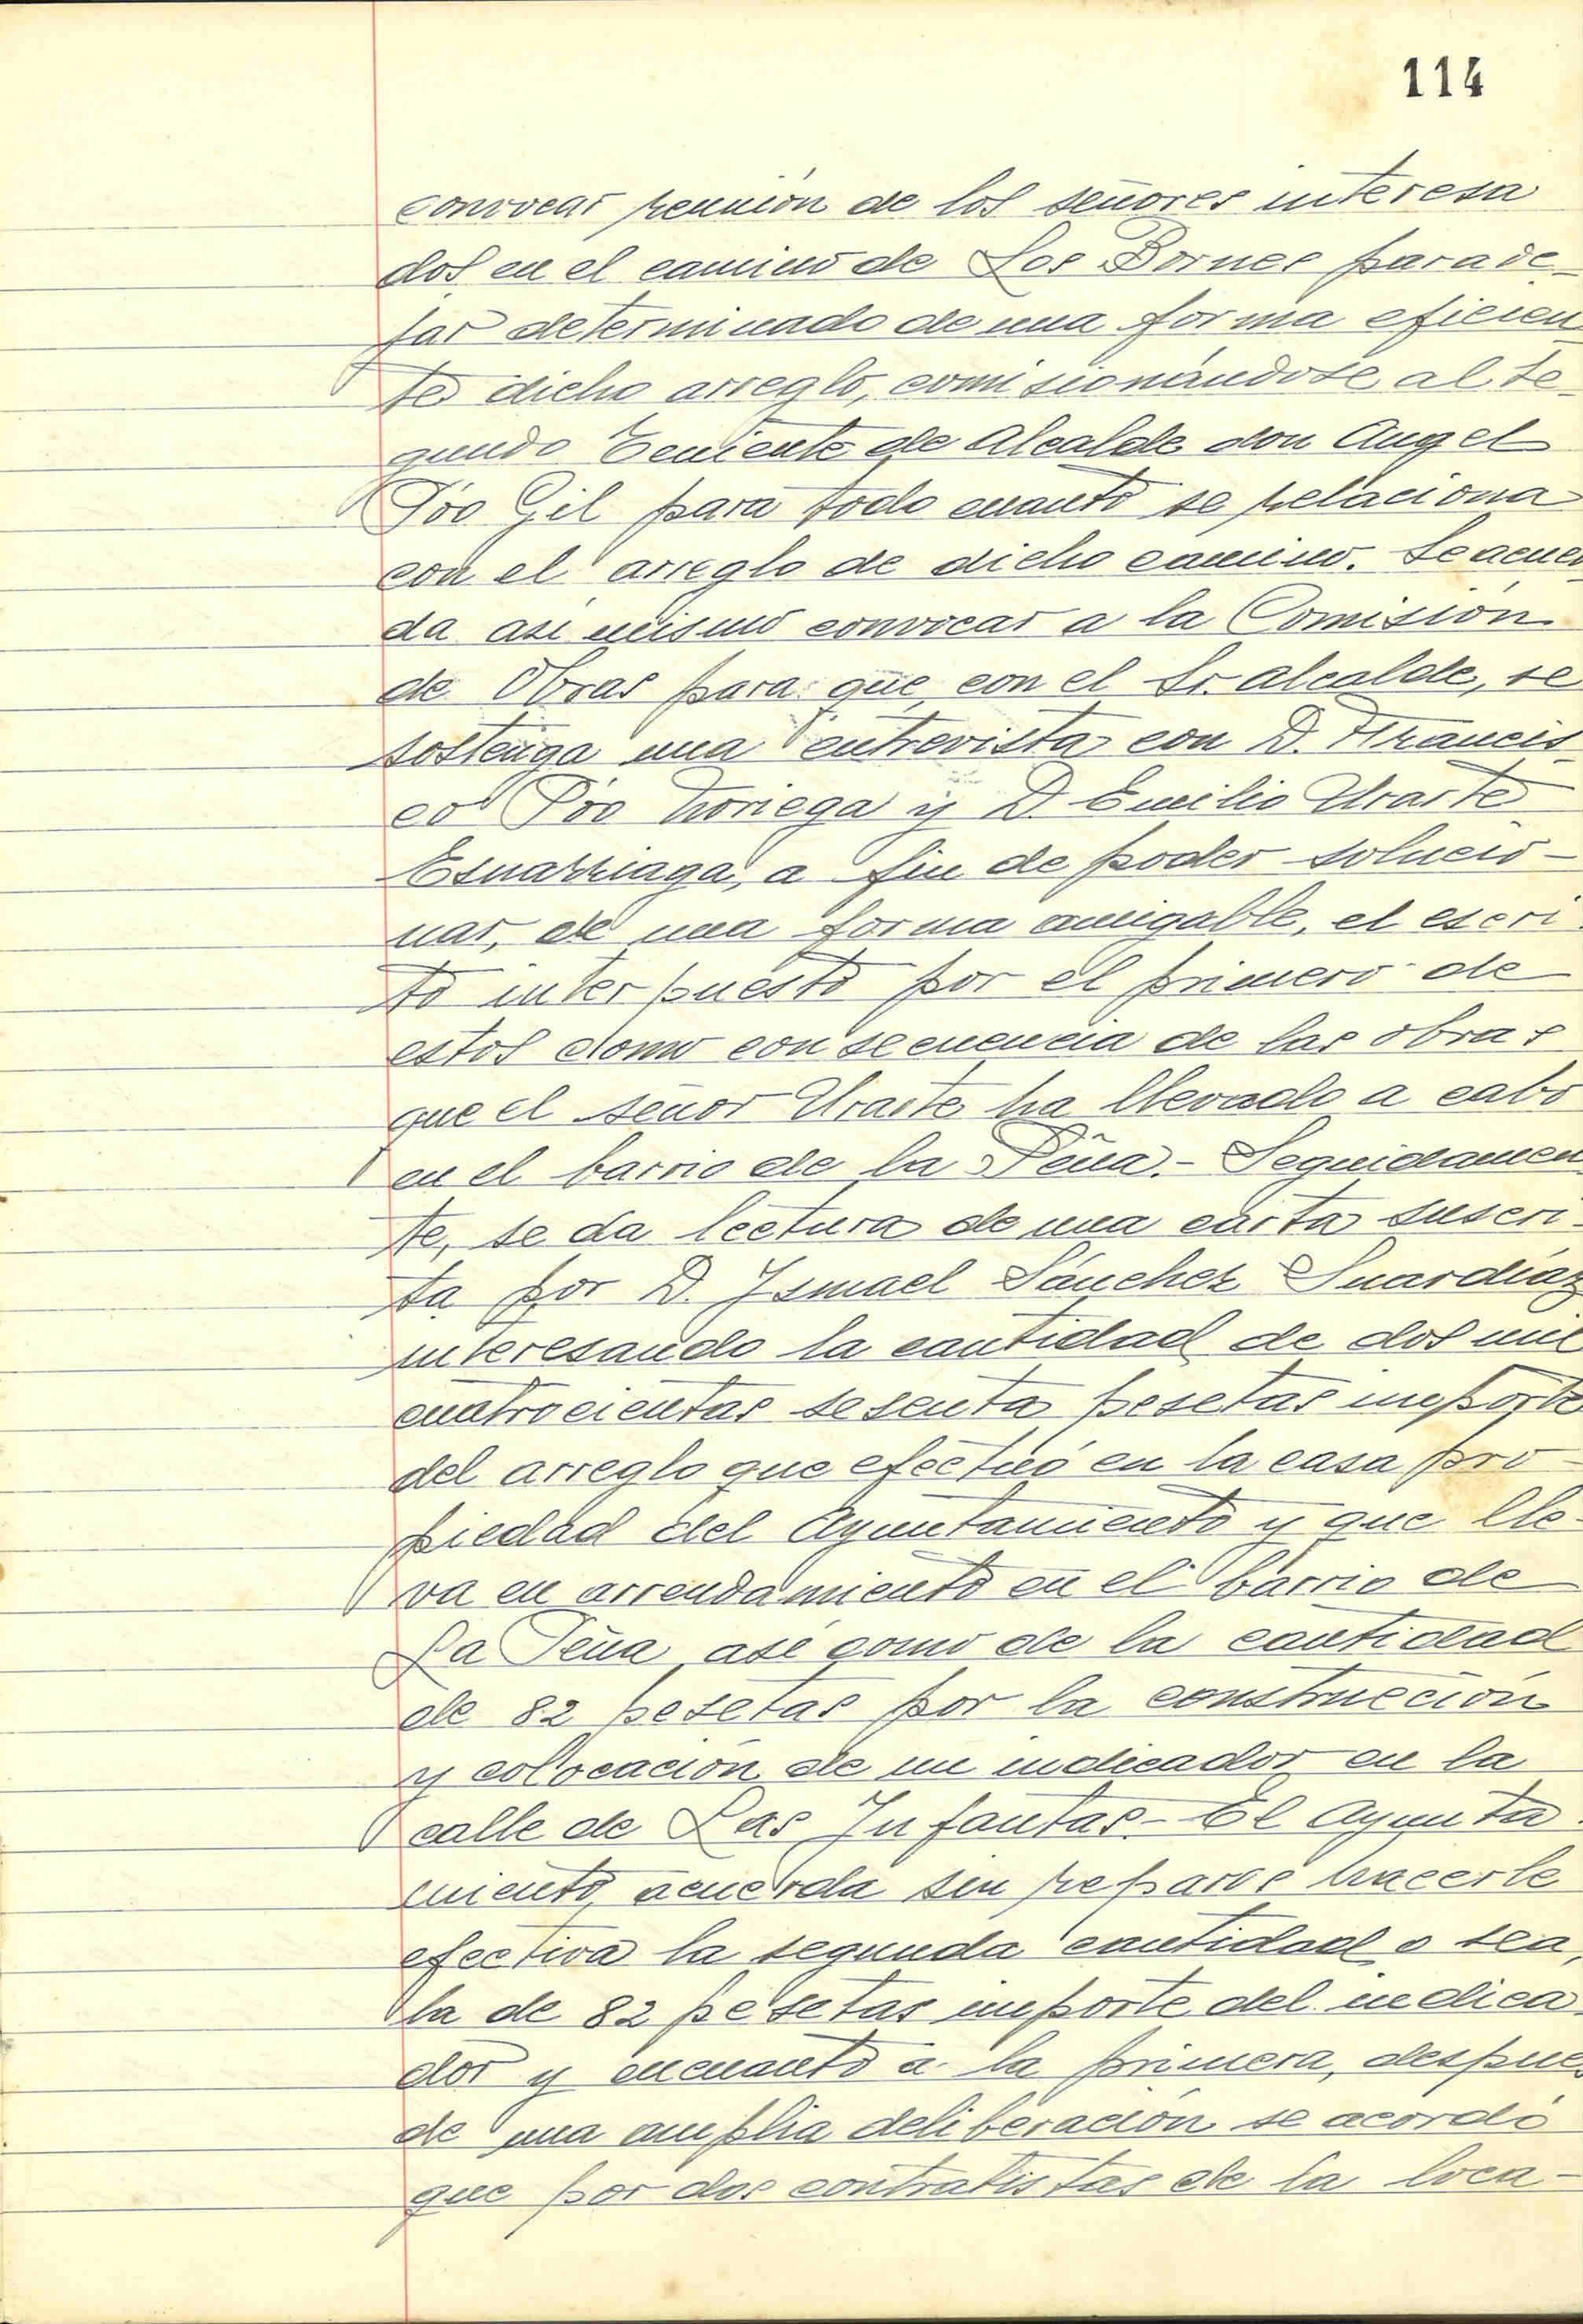 114
convocar reunión de los señores interesa
dos en el camino de Los Bornes para de-
jar determinado de una forma eficien
te dicho arreglo, comisionándose al se-
gundo Teniente de Alcalde don Angel
Póo Gil para todo cuanto se relaciona
con el arreglo de dicho camino. Se acuer
da asi mismo convocar a la Comisión
de Obras para que con el Sr. Alcalde, se
sostenga una entrevista con D. Francis-
co Póo Noriega y D. Emilio Uraste
a fin de poder solucio-
nar, de una forma amigable, el escri
to interpuesto por el primero de
estos como consecuencia de las obras
que el señor Uraste ha llevado a cabo
en el barrio de la Peña.- Seguidamen
te, se da lectura de una carta suscri-
ta por D. Ismael Sánchez Suardíaz
interesando la cantidad de dos mil
cuatrocientas sesenta pesetas importe
del arreglo que efectuó en la casa pro-
piedad del Ayuntamiento y que lle-
va en arrendamiento en el barrio de
La Peña, asi como de la cantidad
de 82 pesetas por la construcción
y colocación de un indicador en la
calle de Las Infantas.- El Ayunta-
miento, acuerda sin reparos hacerle
efectiva la segunda cantidad o sea,
la de 82 pesetas importe del indica-
dor y encuanto a la primera, despues
de una amplia deliberación se acordó
que por dos contratistas de la loca-